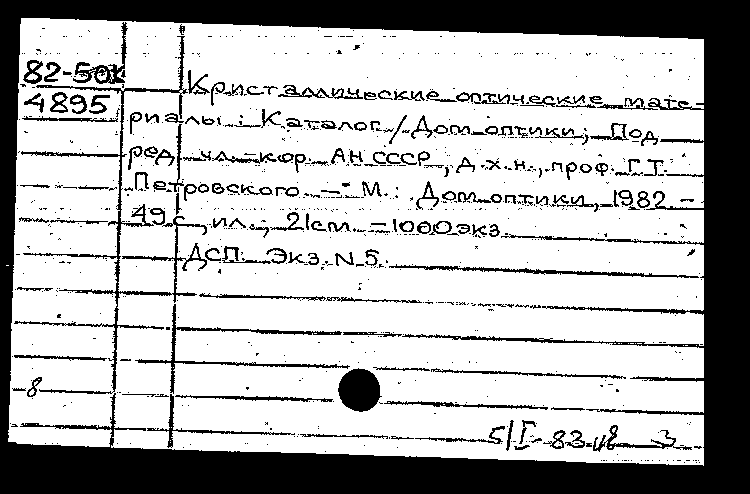 82-5
4895
Кристаллические оптические мате-
риалы : Каталог / Дом оптики ; Под
ред. чл.-кор. АН СССР, д.х.н., проф. Г.Т.
Петровского. — М. : Дом оптики, 1982. —
49 с., ил. ; 21 см. — 1000 экз.
ДСП. Экз. N 5.
8
5/I-83